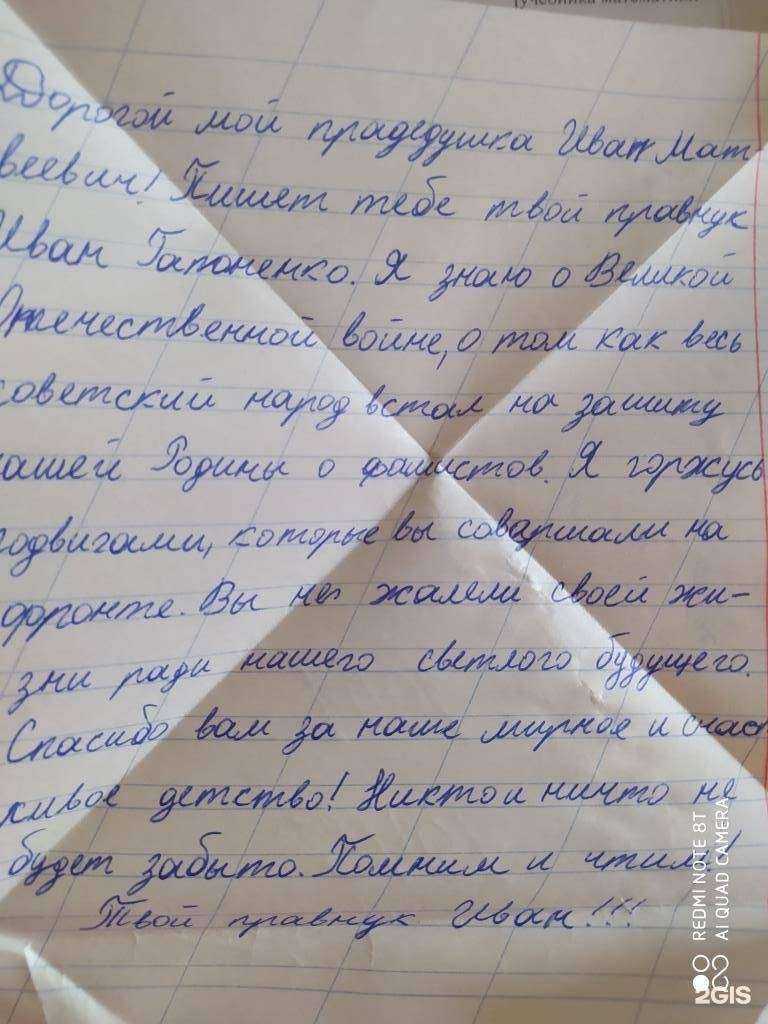 учебника математики
Дорогой мой прадедушка Иван Мат
веевич! Пишет тебе твой правнук
Иван Гапоненко. Я знаю о Великой
Отечественной войне, о том как весь
советский народ встал на зашиту
нашей Родины о фашистов. Я горжусь
подвигами, которые вы совершали на
форонте. Вы не жалели своей жи-
зни ради нашего светлого будущего.
Спасибо вам за наше мирное и счас
ливое детство! Никто и ничто не
будет забыто. Помним и чтим!!
Твой правнук Иван!!!
REDMI NOTE 8T
AI QUAD CAMERA
2GIS